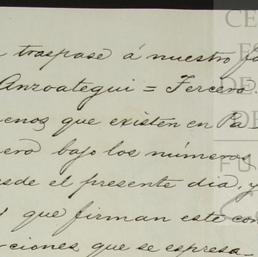 traspase á nuestro
Anzoategui = Tercero
que existen en Pa
bajo los números
el presente dia, y
que firman este con
ciones que se espresa-
CE
DE
DE
FU